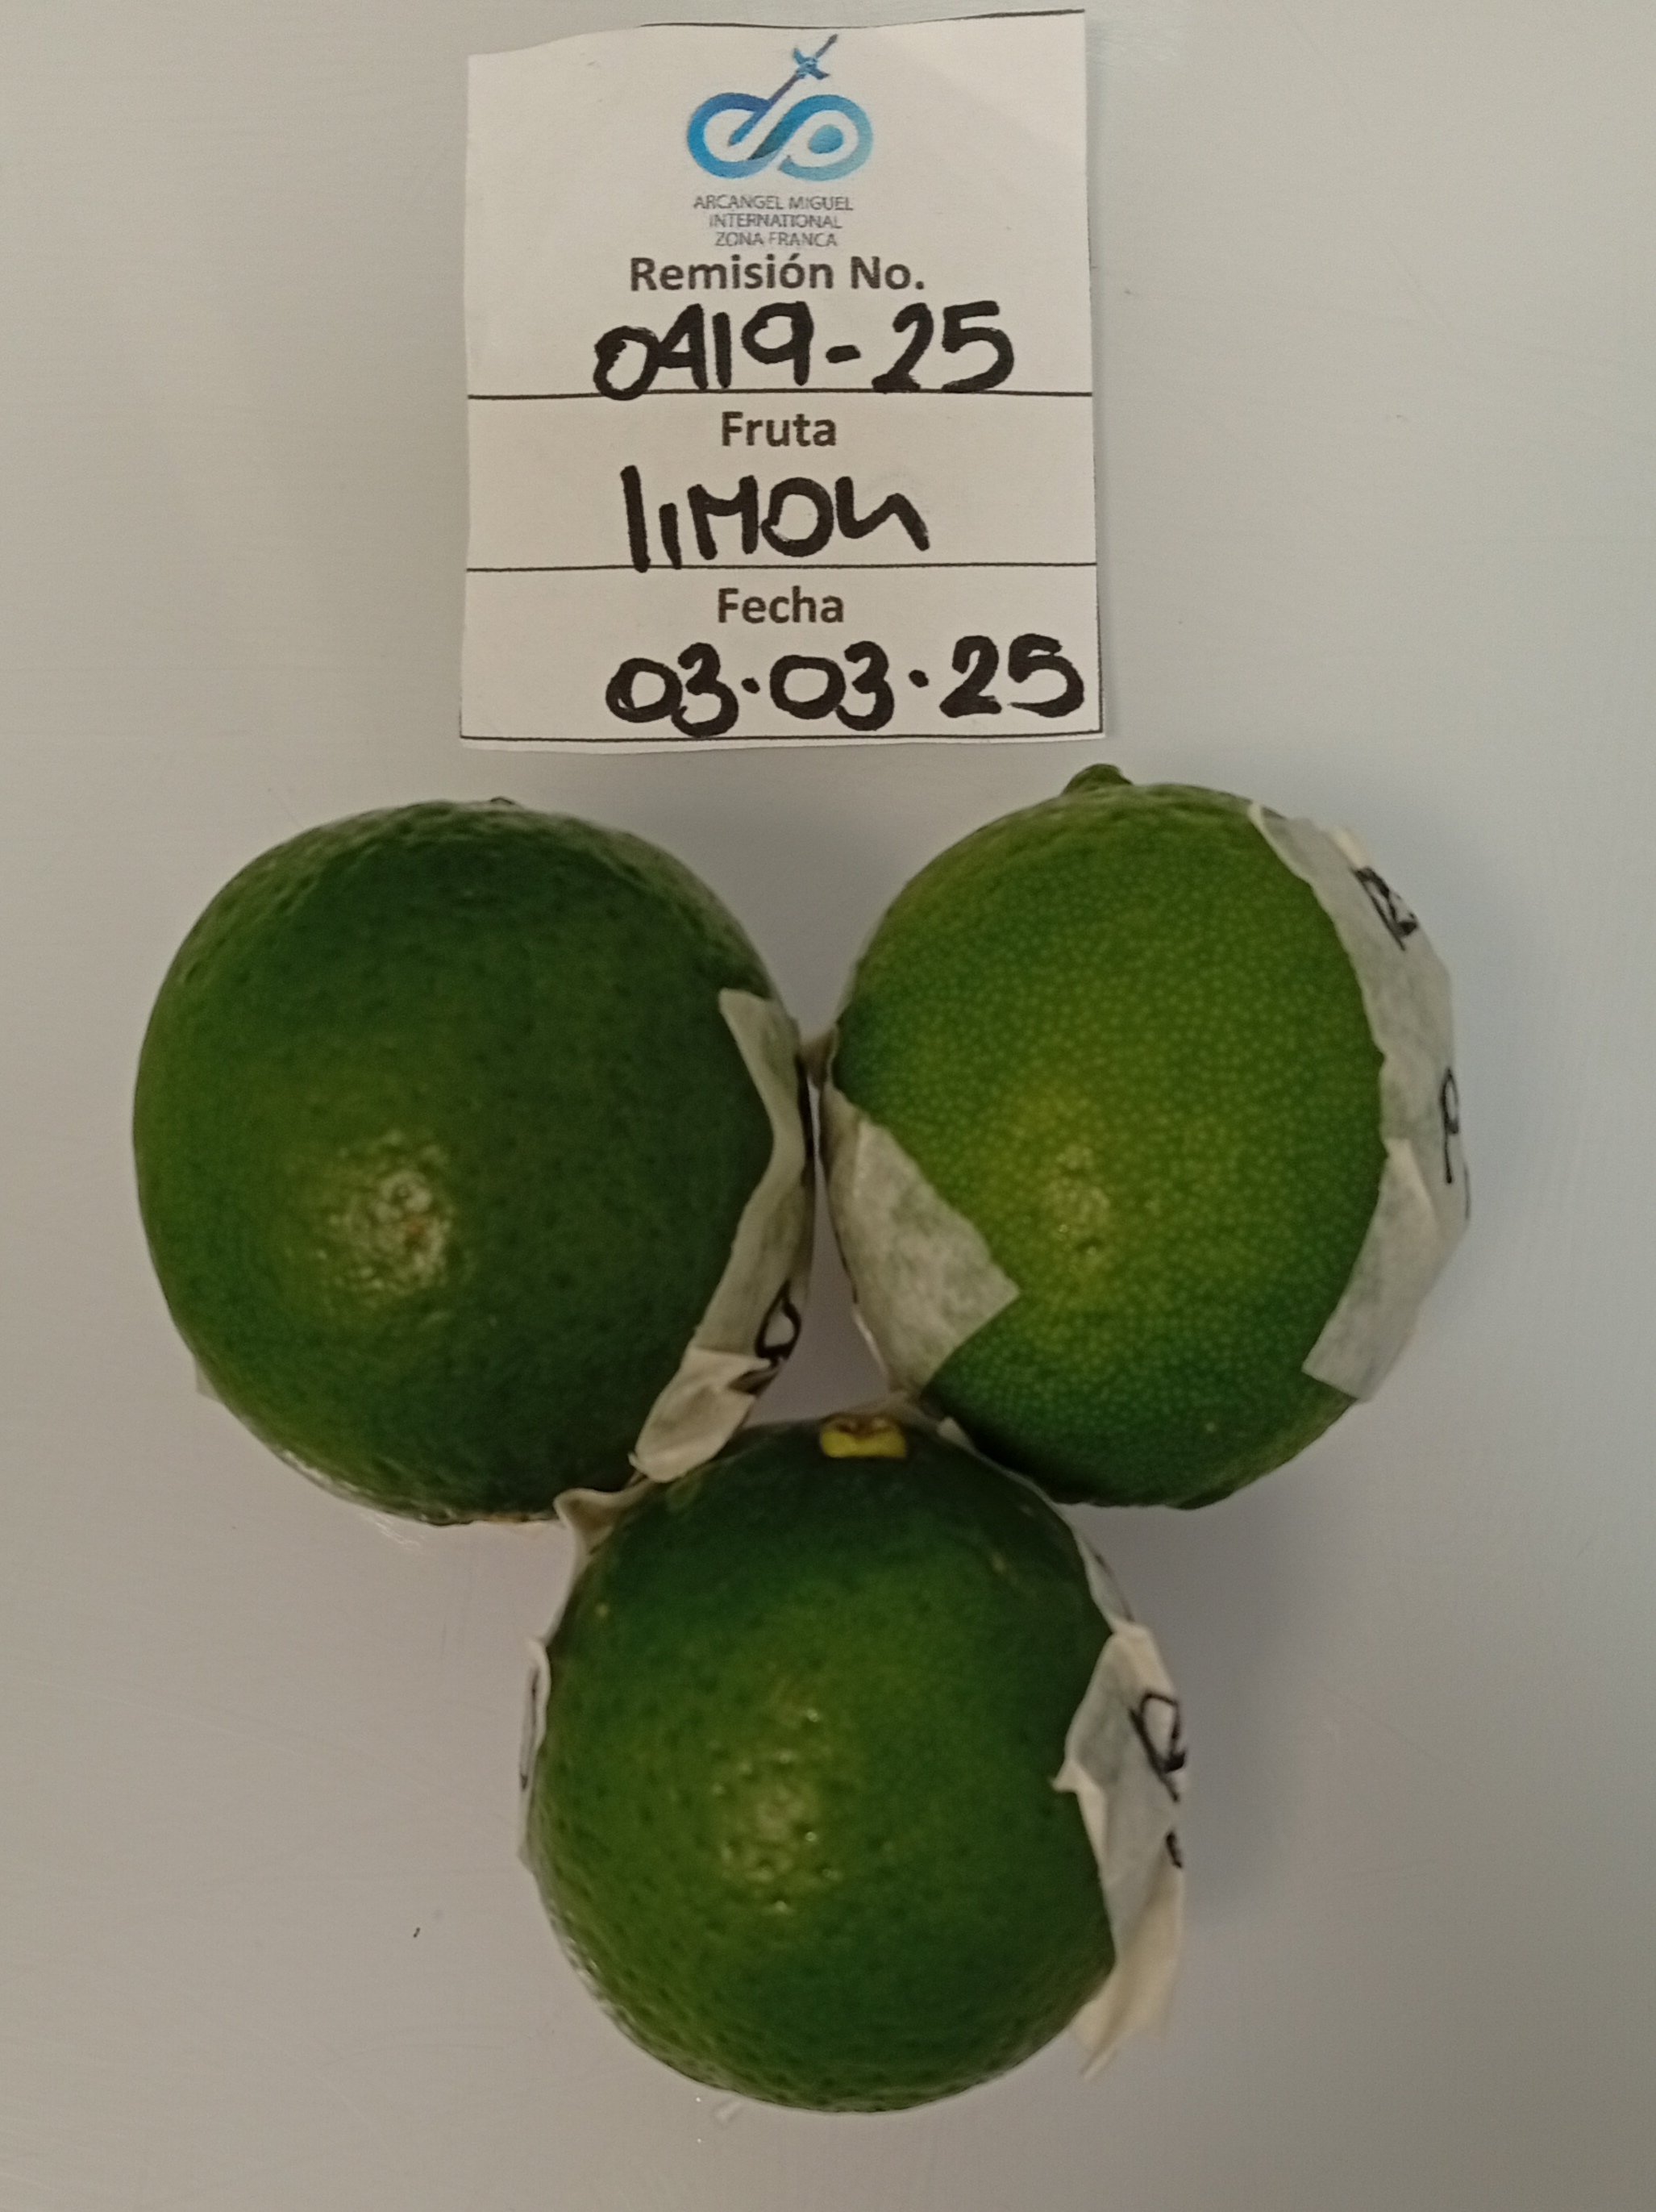 ARCANGEL MIGUEL
INTERNATIONAL
ZONA FRANCA
Remisión No.
0419-25
Fruta
liMON
Fecha
03.03.25